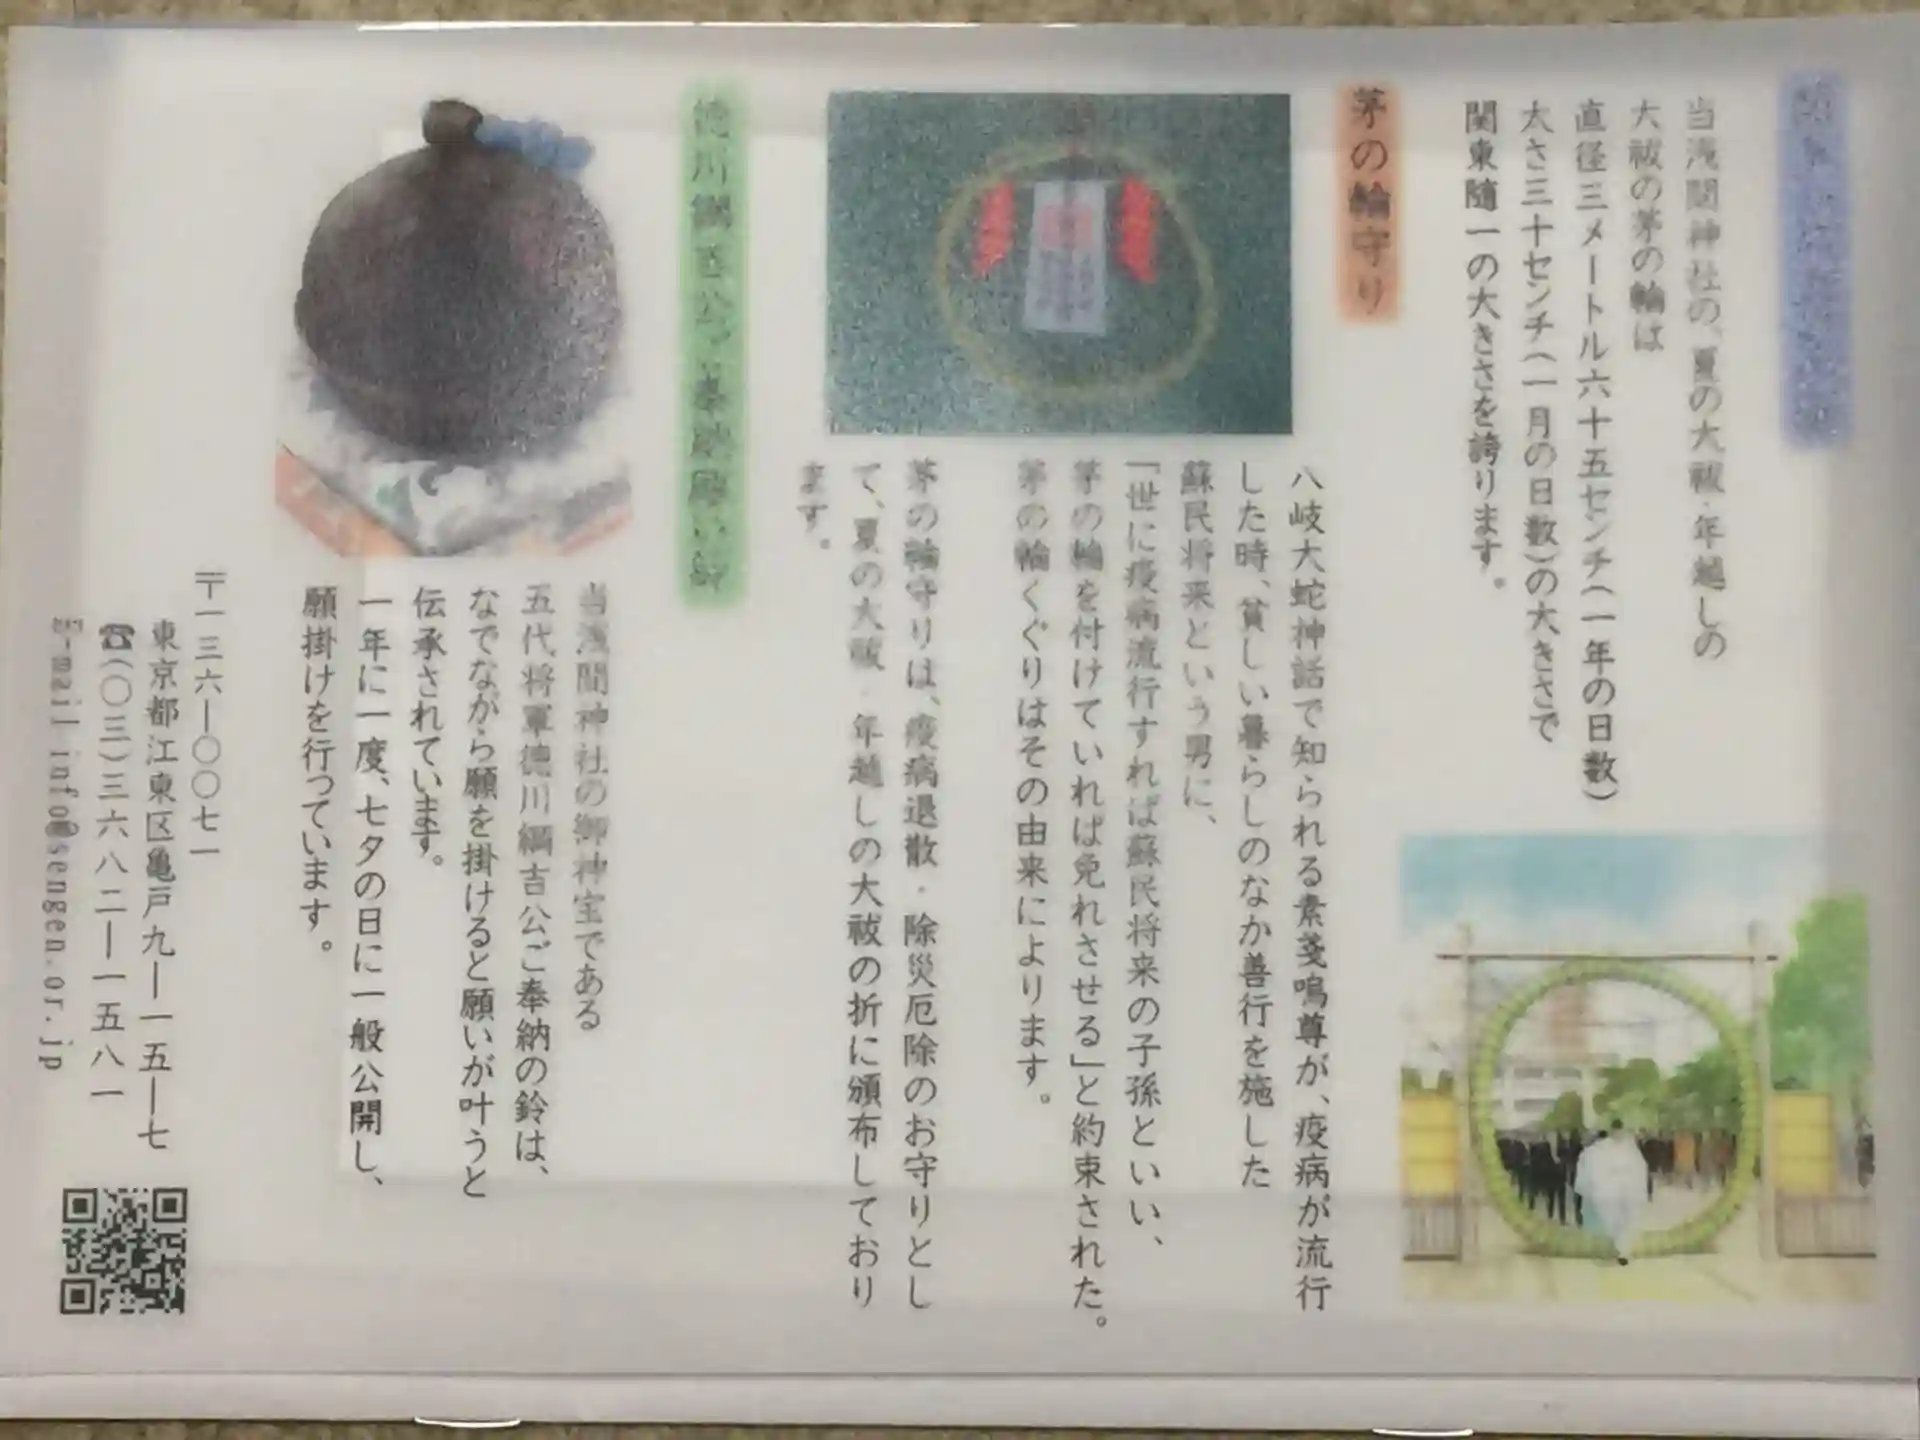 当浅間神社の、夏の大祓・年越しの
大祓の茅の輪は
直径三メートル六十五センチ(一年の日数)
太さ三十センチ(一月の日数)の大きさで
関東随一の大きさを誇ります。
茅の輪守り
八岐大蛇神話で知られる素戔嗚尊が、疫病が流行
した時、貧しい暮らしのなか善行を施した
蘇民将来という男に、
「世に疫病流行すれば蘇民将来の子孫といい、
茅の輪を付けていれば免れさせる」と約束された。
茅の輪くぐりはその由来によります。
茅の輪守りは、疫病退散・除災厄除のお守りとし
て、夏の大祓・年越しの大祓の折に頒布しており
ます。
徳川綱吉公ご奉納願い鈴
当浅間神社の御神宝である
五代将軍徳川綱吉公ご奉納の鈴は、
なでながら願を掛けると願いが叶うと
伝承されています。
一年に一度、七夕の日に一般公開し、
願掛けを行っています。
〒一三六ー〇〇七一
東京都江東区亀戸九ー一五ー七
☎(〇三)三六八二ー一五八一
E-mail info@sengen.or.jp